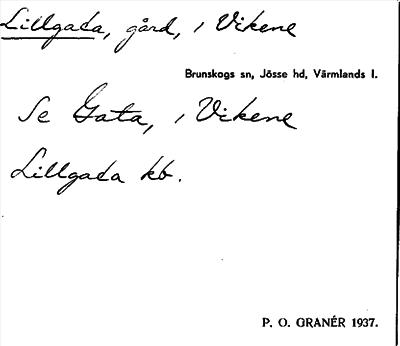 Lillgata, gård, i Vikene
Brunskogs sn, Jösse hd, Värmlands l.
Se Gata, i Vikene
Lillgata kb.
P. O. GRANÉR 1937.